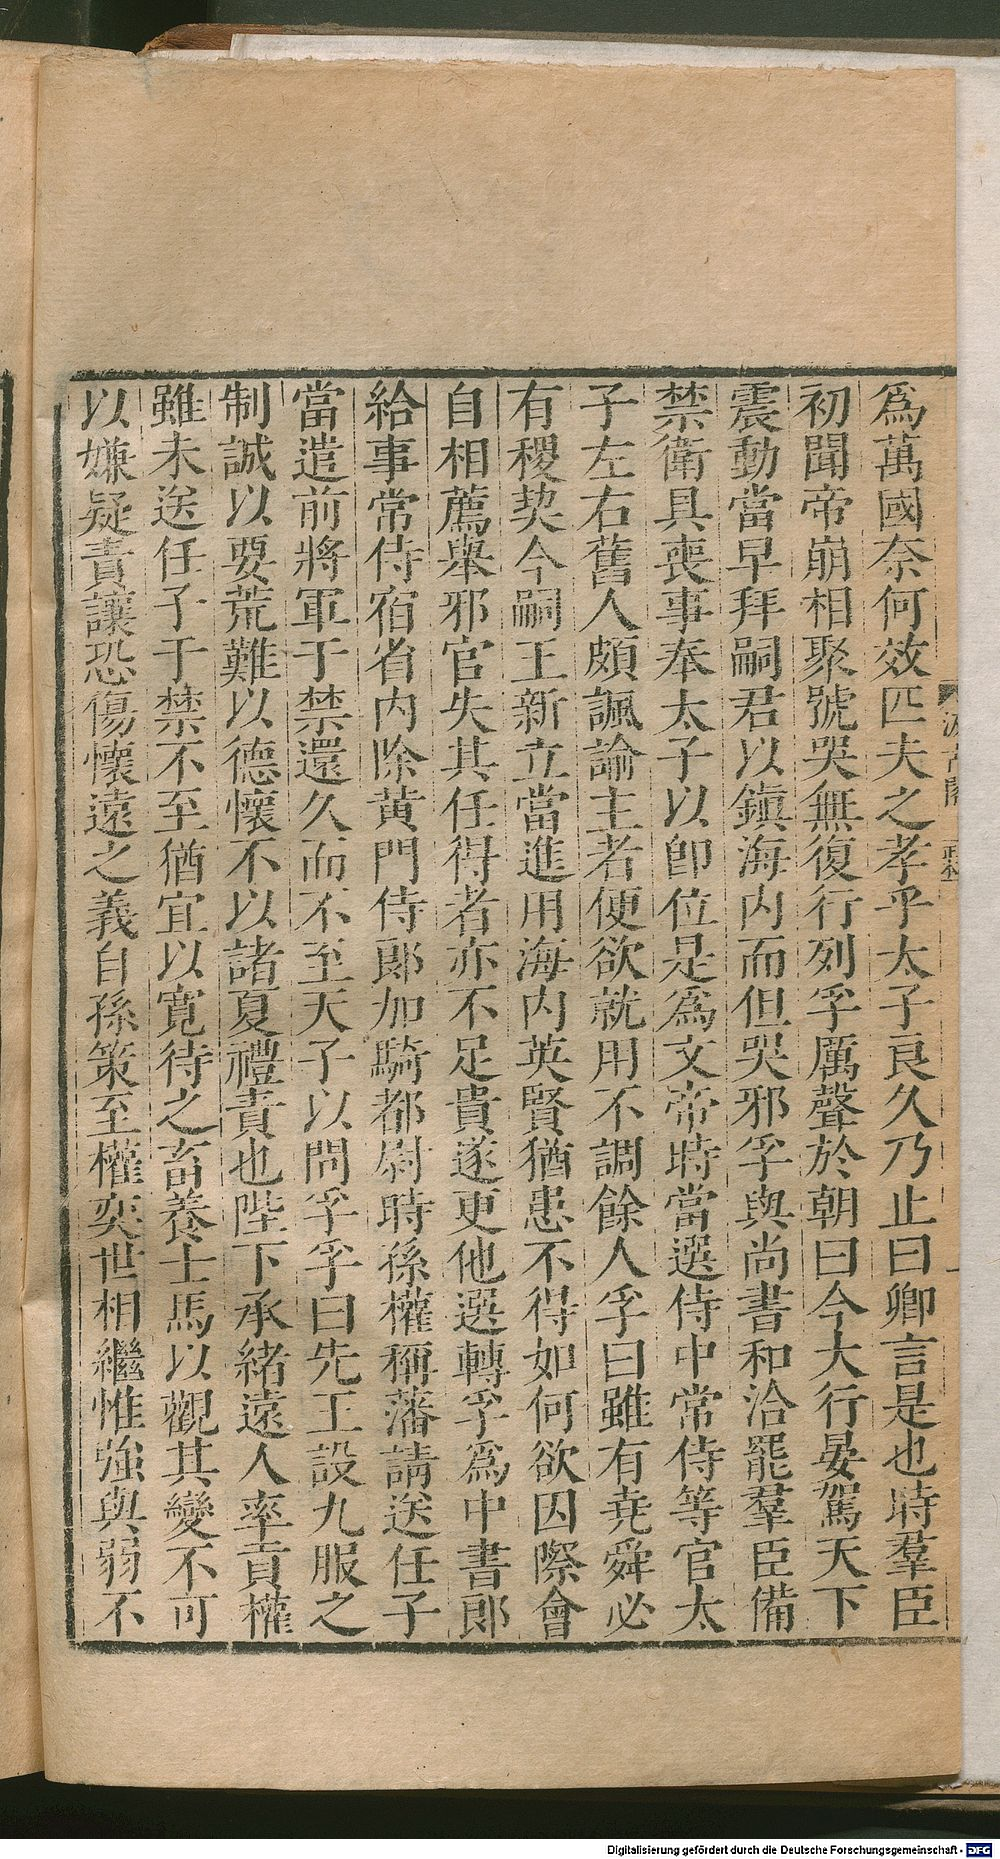 爲萬國奈何效匹夫之孝乎太子良久乃止曰卿言是也時羣臣
初聞帝崩相聚號哭無復行列孚厲聲於朝曰今大行晏駕天下
震動當早拜嗣君以鎮海内而但哭邪孚與尚書和洽罷羣臣備
禁衛具喪事奉太子以卽位是爲文帝時當選侍中常侍等官太
子左右舊人頗諷諭主者便欲就用不調餘人孚曰雖有堯舜必
有稷契今嗣王新立當進用海内英賢猶患不得如何欲因際會
自相薦舉邪官失其任得者亦不足貴遂更他選轉孚爲中書郎
給事常侍宿省内除黃門侍郎加騎都尉時孫權稱藩請送任子
當遣前將軍于禁還久而不至天子以問孚孚曰先王設九服之
制誠以要荒難以德懷不以諸夏禮責也陛下承緒遠人率貢權
雖未送任子于禁不至猶宜以寛待之畜養士馬以觀其變不可
以嫌疑責讓恐傷懷遠之義自孫策至權奕世相繼惟強與弱不
Digitalisierung gefördert durch die Deutsche Forschungsgemeinschaft - DFG